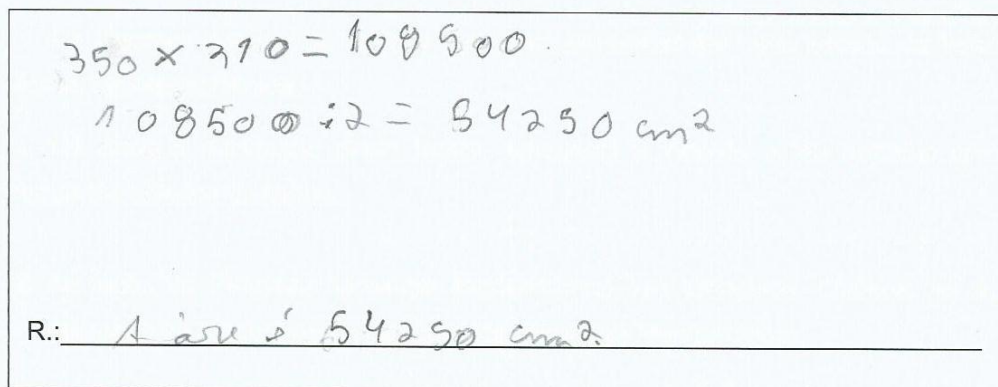 350 × 310 = 108500
108500 : 2 = 54250 cm²
R.: A àre é 54250 cm².